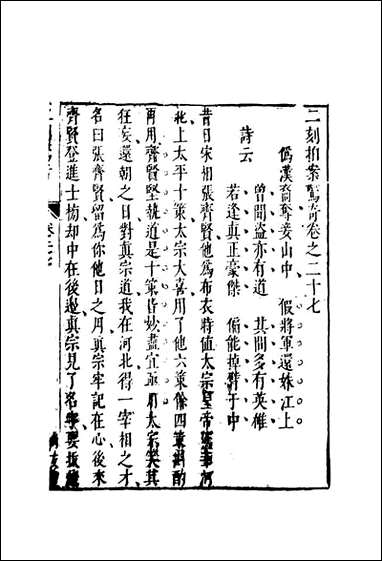 二刻拍案驚奇卷之二十七
偽漢裔奪妾山中　假將軍還姝江上
詩云
曾聞盜亦有道　其間多有英雄
若逢真正豪傑　偏能掉臂于中
昔日宋相張齊賢他為布衣時值太宗皇帝駕幸河
北上太平十策太宗大喜用了他六策餘四策斟酌
再用齊賢堅執道是十策皆妙盡宜亟用太宗笑其
狂妄還朝之日對真宗道我在河北得一宰相之才
名曰張齊賢留為你他日之用真宗牢記在心後來
齊賢登進士榜却中在後邊真宗見了名字要拔